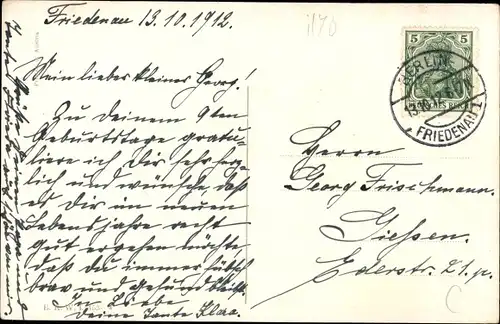 Friedenau 13.10.1912.
Mein lieber kleiner Georg!
Zu deinem 9ten
Geburtstage gratu-
liere ich Dir sehr herz-
lich und wünsche, daß
es Dir in neuen
Lebensjahre recht
gut ergehen möchte,
daß du immer hübsch
brav und gesund bleibst.
In Liebe
deine Tante Klara.
5 5
DEUTSCHES REICH
BERLIN
13.10.12
FRIEDENAU 1
Herrn
Georg Frischmann.
Gießen.
Ederstr. 21.p.